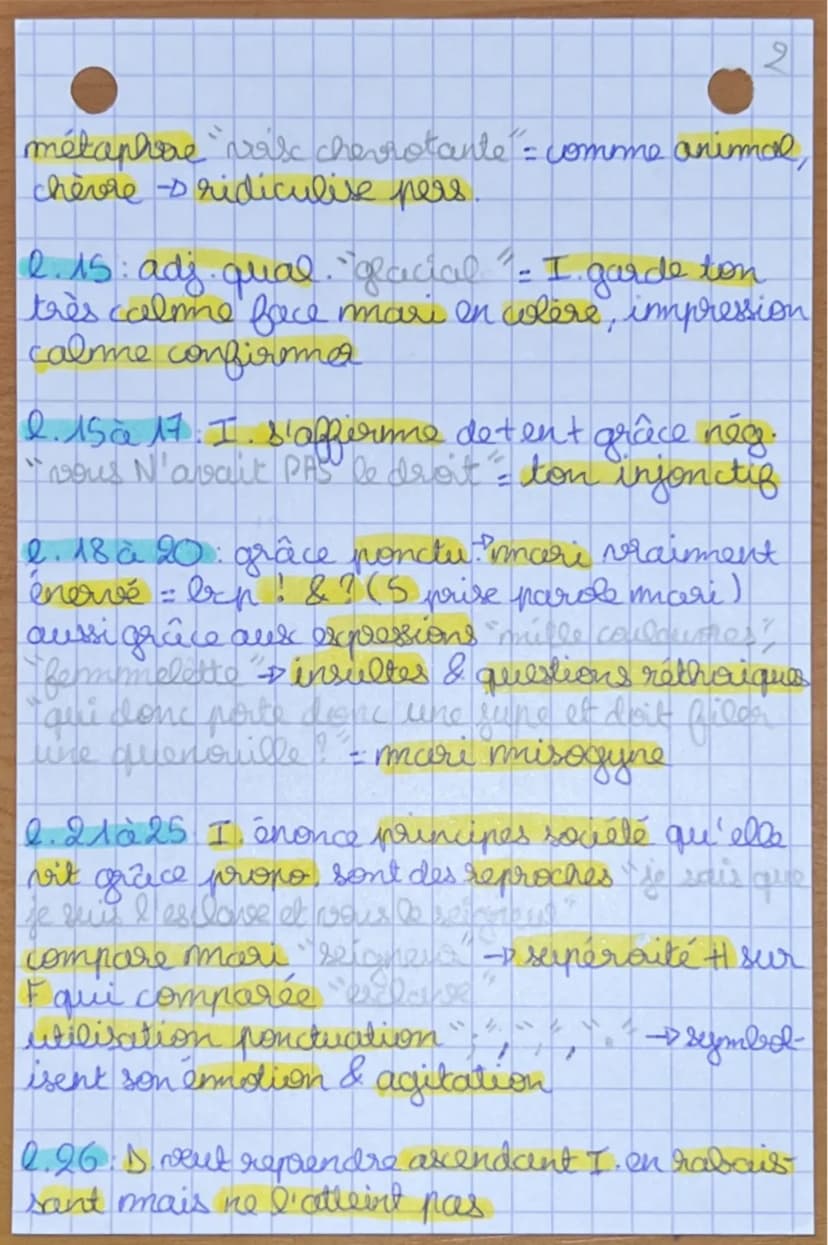 2
métaphore "voix chevrotante" = comme animal,
chèvre → ridiculise pers.
l.15 : adj. qual. "glacial" = I. garde ton
très calme face mari en colère, impression
calme confirmer
l.15 à 17 : I. s'affirme det ent grâce nég.
"vous N'avait PAS le droit" = ton injonctif
l.18 à 20 : grâce ponctu. → mari vraiment
énervé = bcp ! & ? (5 prise parole mari)
aussi grâce aux expressions "mille couleuvres",
"femmelette" → insultes & questions réthoriques
"qui donc porte donc une jupe et doit filer
une quenouille ?" = mari misogyne
l.21 à 25 I. énonce principes société qu'elle
vit grâce propo. sont des reproches "je sais que
je suis l'esclave et vous le seigneur"
compare mari "seigneur" → supéroité H sur
F qui comparée "esclave"
utilisation ponctuation ";", ",", "." → symbol-
isent son émotion & agitation
l.26 : D. veut reprendre ascendant I. en rabais-
sant mais ne l'atteint pas